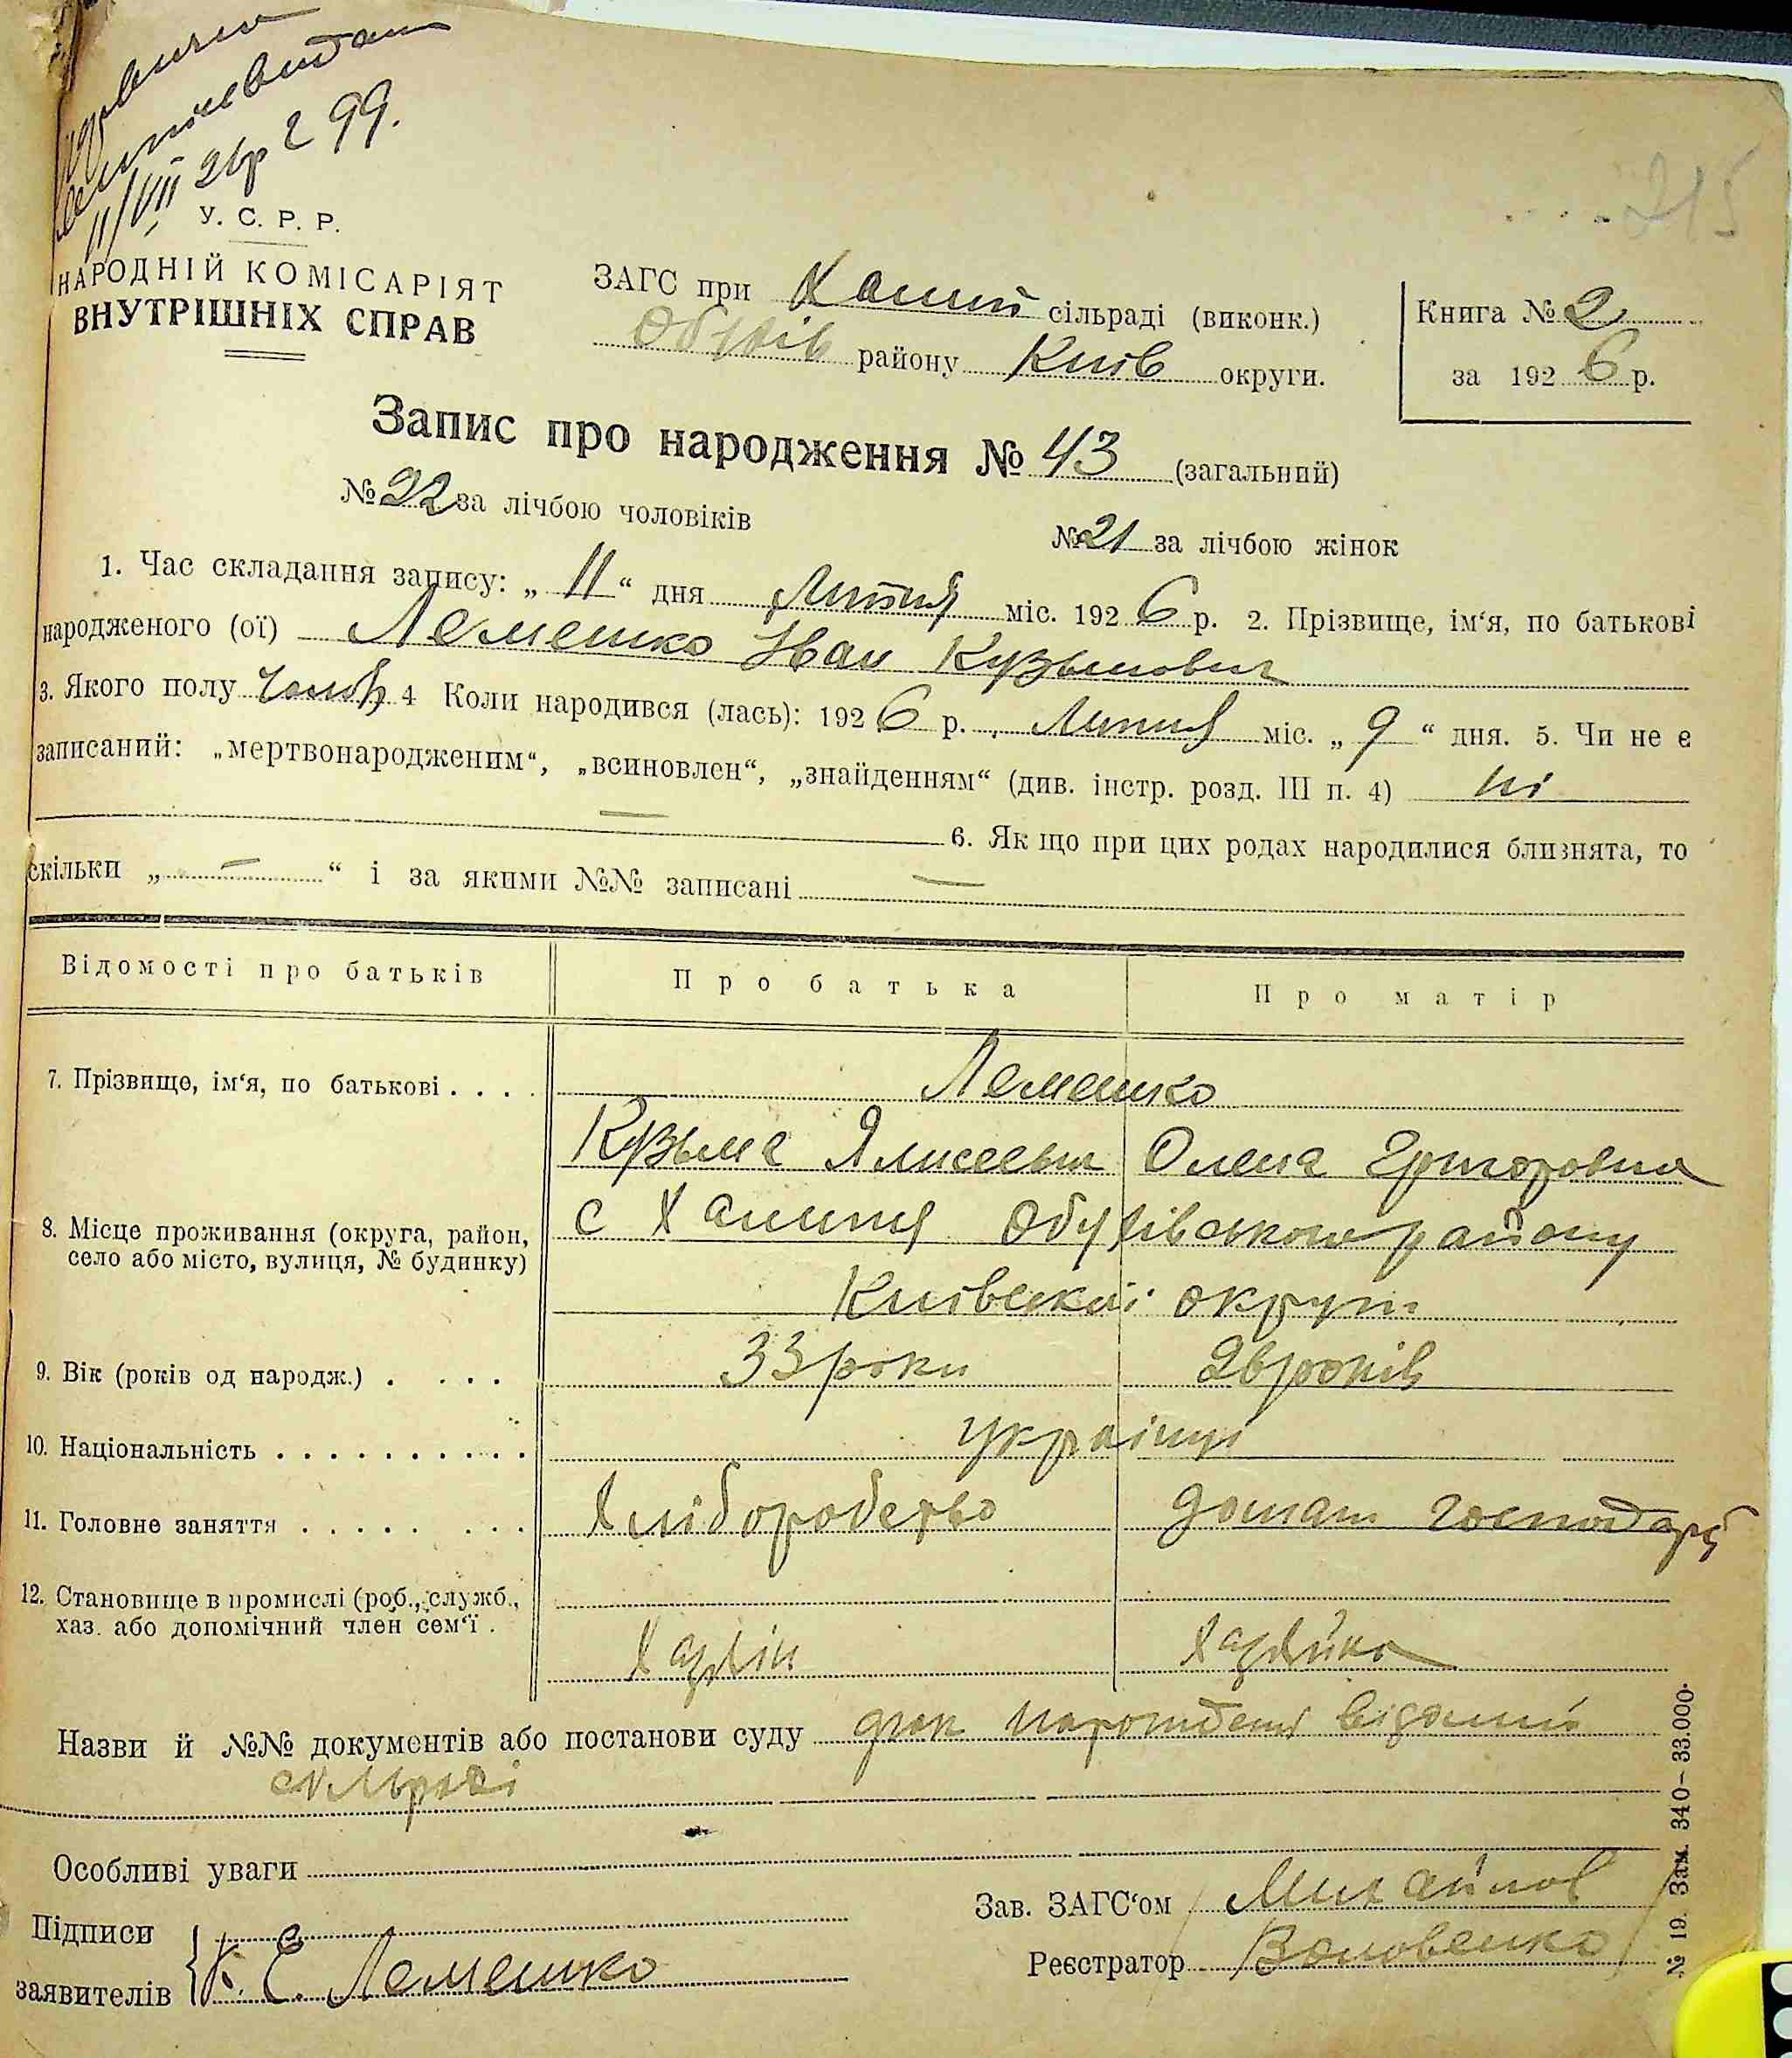 11/VII 26р 2 99.
215
У. С. Р. Р.
НАРОДНІЙ КОМІСАРІЯТ
ВНУТРІШНІХ СПРАВ
ЗАГС при Халип сільраді (виконк.)
Обухів району Київ округи.
Книга № 2
за 1926 р.
Запис про народження № 43 (загальний)
№ 22 за лічбою чоловіків
№ 21 за лічбою жінок
1. Час складання запису: „ 11 “ дня Липня міс. 1926 р. 2. Прізвище, ім‘я, по батькові
народженого (ої) Лемешко Иван Кузьмович
3. Якого полу чолов 4 Коли народився (лась): 1926 р. Липня міс. „ 9 “ дня. 5. Чи не є
записаний: „мертвонародженим“, „всиновлен“, „знайденням“ (див. інстр. розд. III п. 4) ні
— 6. Як що при цих родах народилися близнята, то
скільки „ — “ і за якими №№ записані —
Відомості про батьків Про батька Про матір
7. Прізвище, ім‘я, по батькові . . . . Лемешко
Кузьма Ялисеевич Олена Григоровна
8. Місце проживання (округа, район, село або місто, вулиця, № будинку) с Халипя Обухівського району
Київської округи
9. Вік (років од народж.) . . . . 33 роки 26 років
10. Національність . . . . . . . . . . українці
11. Головне заняття . . . . . . . . Хліборобство домаш господар
12. Становище в промислі (роб., служб.,
хаз. або допомічний член сем‘ї . Хазяїн Хазяйка
Назви й №№ документів або постанови суду народження відомий
сільраді
Особливі уваги
Підписи
заявителів К. Е. Лемешко
Зав. ЗАГС‘ом Михайлов
Реєстратор Воловенко
№ 19. Зам. 340–33.000.